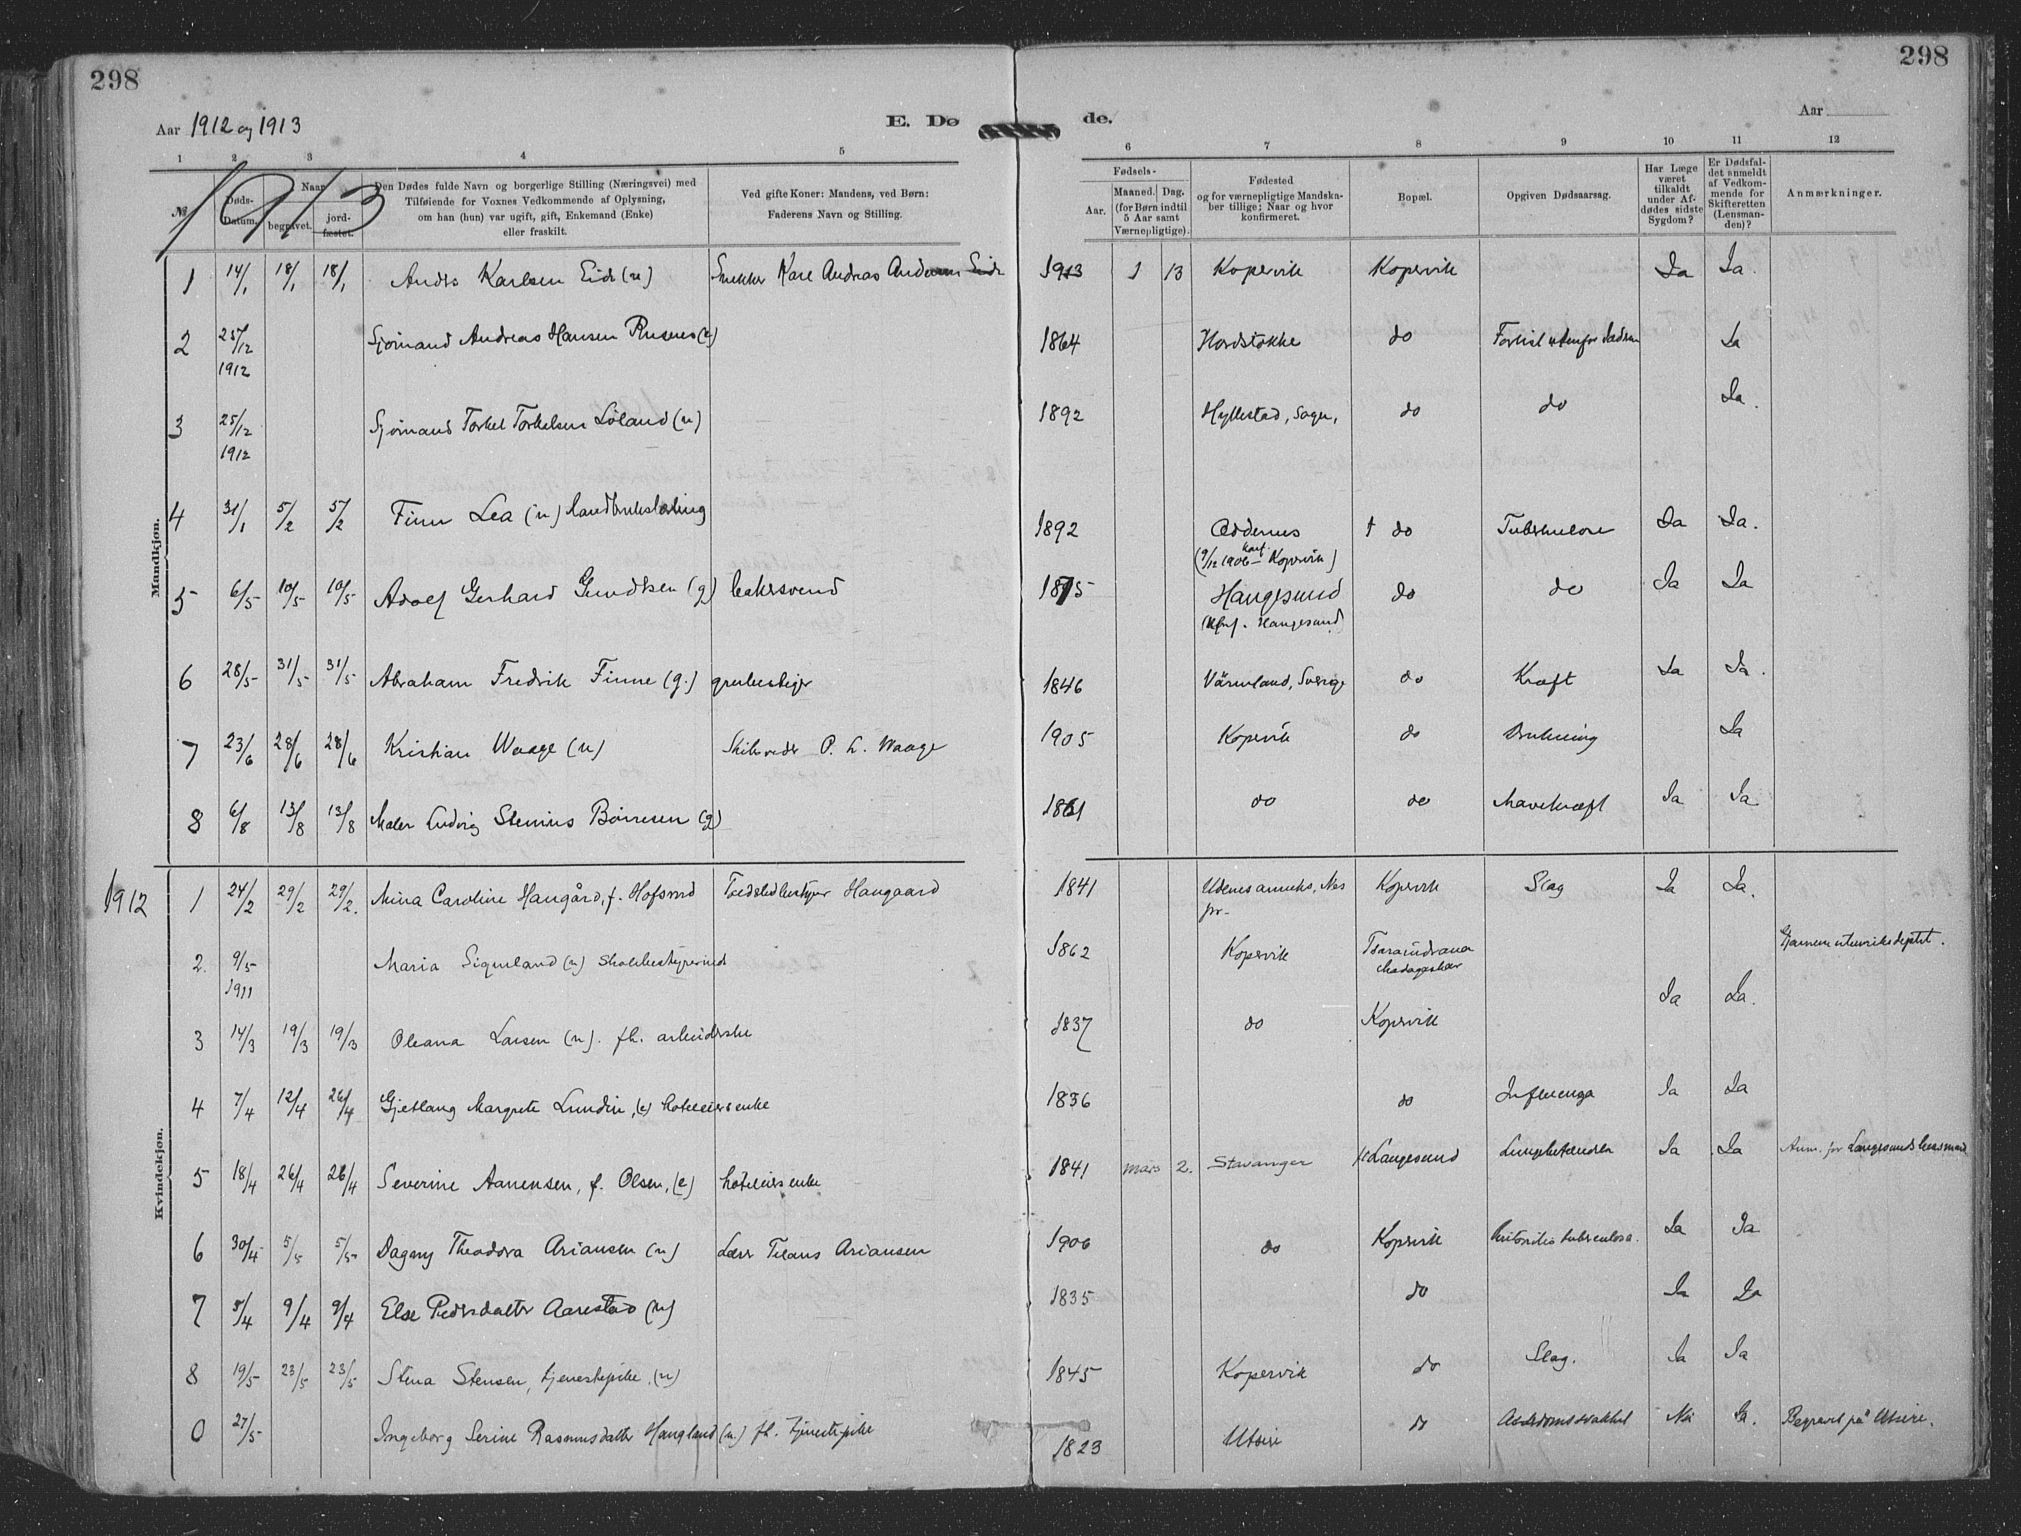 298
298
Aar 1912 og 1913
E. Dø
de.
Aar
1 2 3 4 5 6 7 8 9 10 11 12
1913
№
Døds-Datum.
Naar
begravet.
jord-fæstet.
Den Dødes fulde Navn og borgerlige Stilling (Næringsvei) med
Tilføiende for Voxnes Vedkommende af Oplysning,
om han (hun) var ugift, gift, Enkemand (Enke)
eller fraskilt.
Ved gifte Koner: Mandens, ved Børn:
Faderens Navn og Stilling.
Fødsels-
Aar.
Maaned. Dag.
(for Børn indtil
5 Aar samt
Værnepligtige).
Fødested
og for værnepligtige Mandska-
ber tillige: Naar og hvor
konfirmeret.
Bopæl.
Opgiven Dødsaarsag.
Har Læge
været
tilkaldt
under Af-
dødes sidste
Sygdom?
Er Dødsfal-
det anmeldt
af Vedkom-
mende for
Skifteretten
(Lensman-
den)?
Anmærkninger.
Mandkjøn.
1 14/1 18/1 18/1 Anders Karlsen Eide (u) Snekker Karl Andreas Andersen Eide 1913 1 13 Kopervik Kopervik Ja Ja.
2 25/12 1912 Sjømand Andreas Hansen (g) 1864 do Forlist utenfor Ja
3 25/12 1912 Sjømand Torkel Torkelsen Løland (u) 1892 Hyllestad, Sogn, do do Ja.
4 31/1 5/2 5/2 Finn Lea (u) 1892 Oddernes do Tuberkulose Ja Ja.
(9/12 1906 konf. Kopervik)
5 6/5 10/5 10/5 Adolf Gerhard Gundersen (g) bakersvend 1875 Haugesund do do Ja Ja
(Konf. Haugesund)
6 28/5 31/5 31/5 Abraham Fredrik Finne (g.) grubestiger 1846 Värmland, Sverige do Kræft Ja Ja.
7 23/6 28/6 28/6 Kristian Waage (u) Skibsreder P. L. Waage 1905 Kopervik do Drukning Ja
8 6/8 13/8 13/8 Maler Ludvig Stenius Børresen (g) 1861 do do Mavekræft Ja Ja
Kvindekjøn.
1912 1 24/2 29/2 29/2. Mina Caroline Haugård, f. Hofsrud Haugaard 1841 Udenes anneks, Nes Kopervik Slag Ja Ja.
pr.
2. 9/5 1911 Maria Sigurland (u) Skolebestyrerinde 1862 Kopervik Tsaraindrana Madagaskar Gjennem utenriksdeptet.
3 14/3 19/3 19/3 Oleana Larsen (u). fh. arbeiderske 1837 do Kopervik Ja Ja.
4 7/4 12/4 26/4 Gjetlaug Margrete Lundin, (e) hoteleiers enke 1836 do Influenza Ja Ja
5 18/4 26/4 26/4 Severine Aanensen, f. Olsen, (e) hoteleiers enke 1841 mars 2. Stavanger Langesund Lungebetændelse Ja Ja Anm. for Langesunds lensmand
6 30/4 5/5 5/5 Dagny Theodora Ariansen (u) Ariansen 1906 do Kopervik tuberculosa. Ja Ja
7 5/4 9/4 9/4 Else Pedersdatter Aarestad (u) 1835 do Ja Ja
8 19/5 23/5 23/5 Stina Stensen, tjenestepike. (u) 1845 Kopervik do Slag. Ja Ja
0 27/5 Ingeborg Serine Rasmusdatter Haugland (u.) fh. tjenestepike 1823 Utsire do Alderdomssvakhet Nei Ja. Begravet på Utsire.